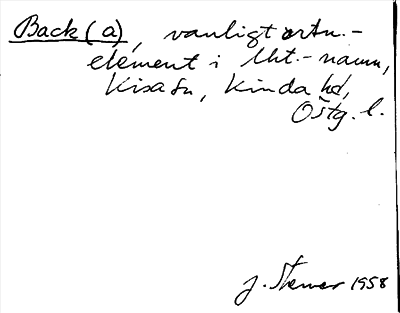 Back(a), vanligt ortn.-
element i lht.-namn,
Kisa sn, Kinda hd,
Östg. l.
J. Stemer 1958